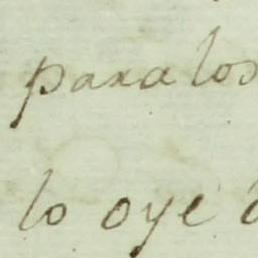 para los
lo oye